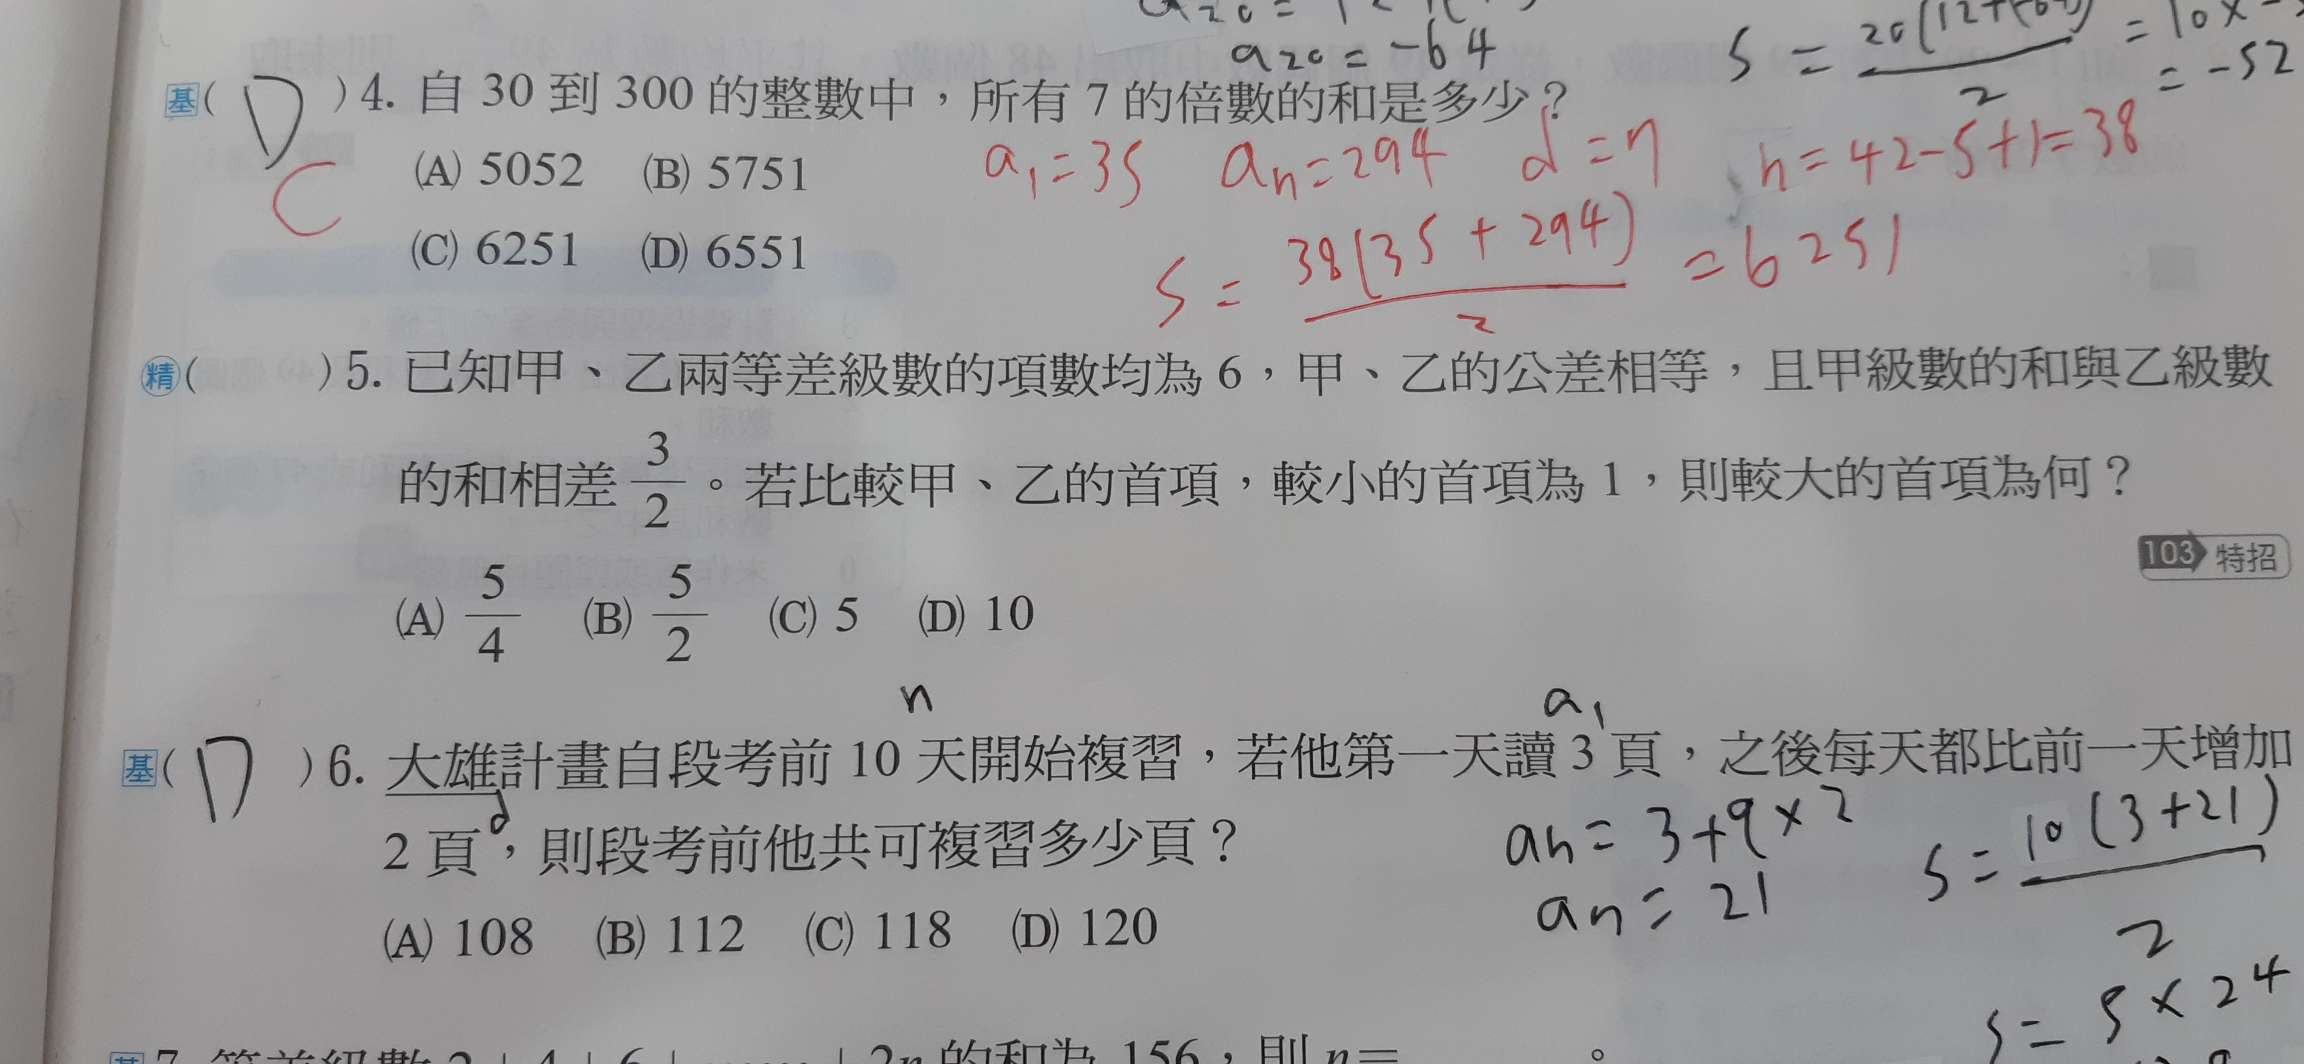 a20 = -64
S = 20(12+(-64)) / 2 = 10×
= -52
基( D )4. 自 30 到 300 的整數中，所有 7 的倍數的和是多少？
C
(A) 5052 (B) 5751
(C) 6251 (D) 6551
a1=35 an=294 d=7 n=42-5+1=38
S = 38(35+294) / 2 = 6251
精( )5. 已知甲、乙兩等差級數的項數均為 6，甲、乙的公差相等，且甲級數的和與乙級數
的和相差 3/2。若比較甲、乙的首項，較小的首項為 1，則較大的首項為何？
103 特招
(A) 5/4 (B) 5/2 (C) 5 (D) 10
n a1
基( D )6. 大雄計畫自段考前 10 天開始複習，若他第一天讀 3 頁，之後每天都比前一天增加
2 頁，則段考前他共可複習多少頁？
d
(A) 108 (B) 112 (C) 118 (D) 120
an = 3+9×2
an = 21
S = 10(3+21) / 2
S = 5×24
基 7. 等差級數 2+4+6+ +2n 的和為 156，則 n= 。